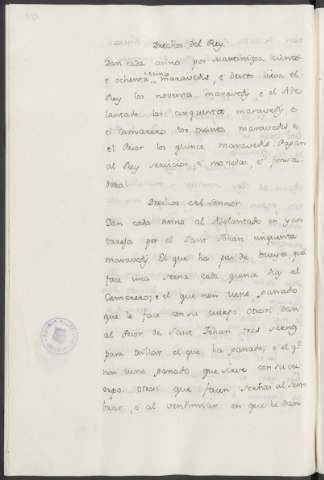 Drechos del Rey
Dan cada anno por Martiniega ciento
e ochenta e cinco maravedis, e desto lieva el
Rey los noventa maravedis e el Ade
lantado los cinquenta maravedis e
el Camarero los treinta maravedis, e
el Prior los quince maravedis. Pagan
al Rey servicios, e monedas, e fonsa-
dera.
Drechos del Sennor
Dan cada anno al Adelantado en yan
tarefa por el Sant Johan cinquenta
maravedis. El que ha par de bueyes, que
face una serna cada quince dias al
Camarero; e el que non tiene ganado
que le face con su cuerpo. Otrosi dan
al Prior de Sant Johan tres sernas
para trillar el que ha ganado, e el q.
non tiene ganado que sieve con su cu-
erpo. Otrosi que facen sernas al sem
brar, e al vendimiar en que le dan